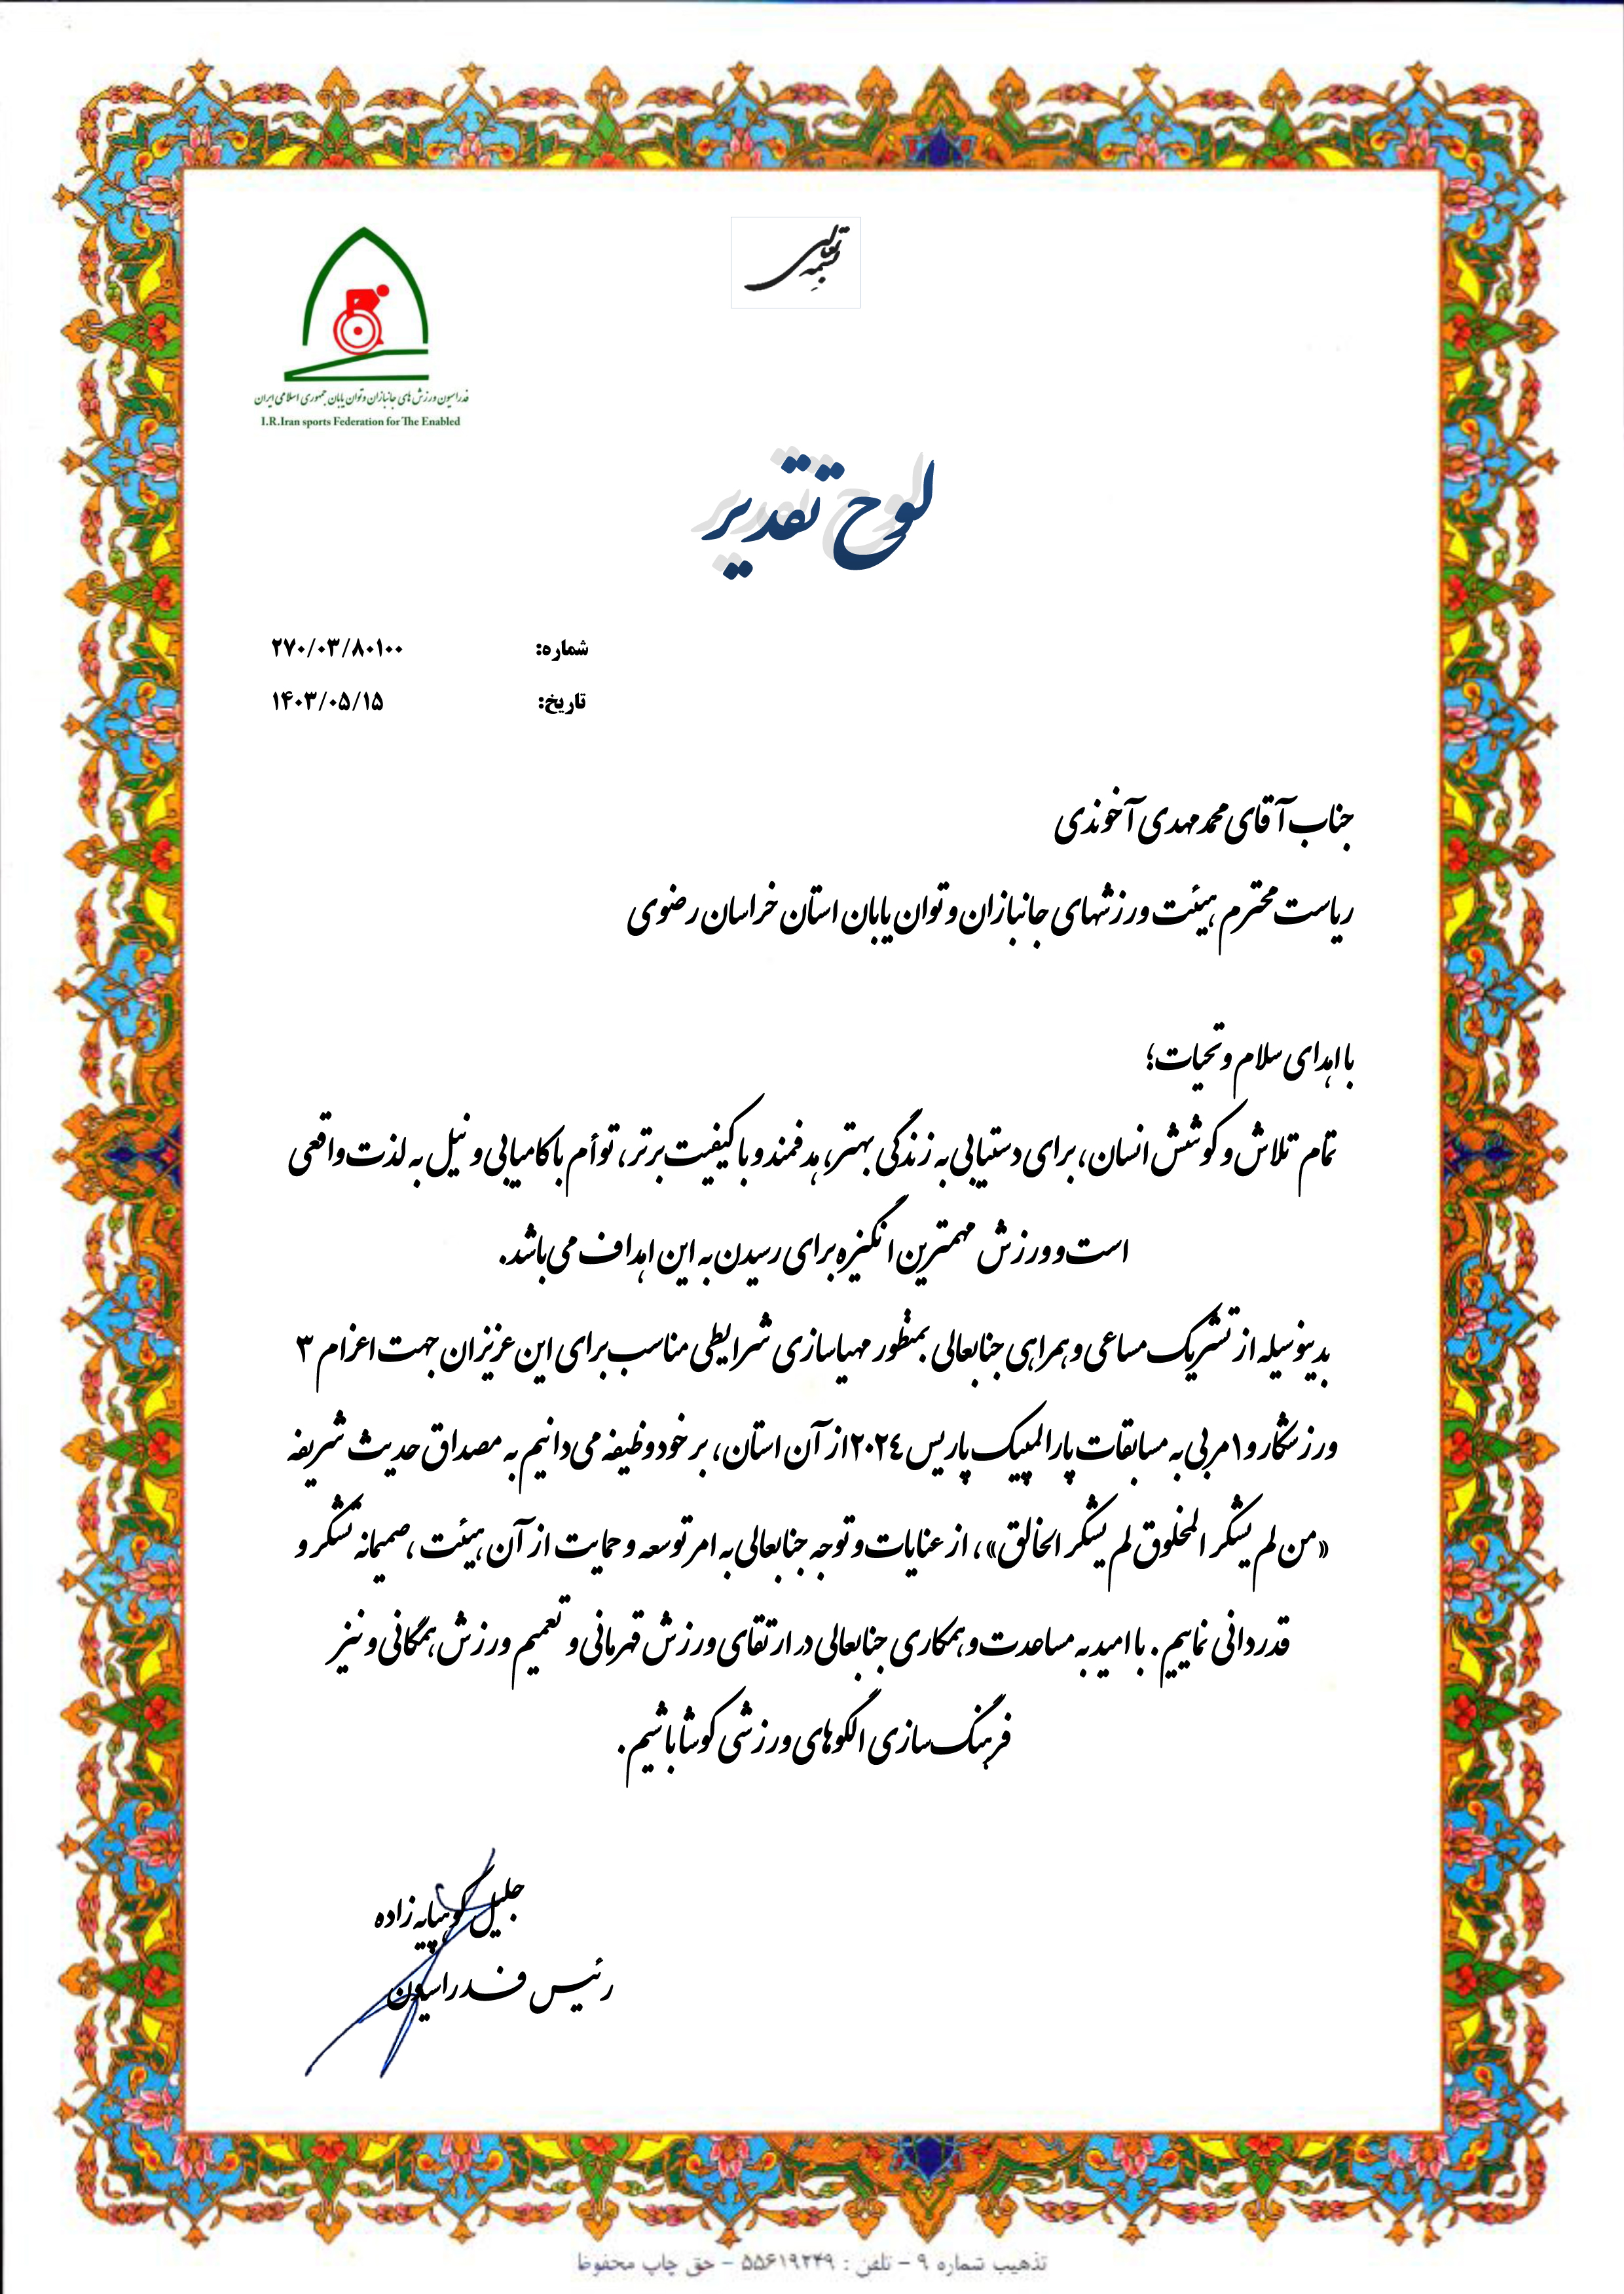 بسمه تعالی
فدراسیون ورزش های جانبازان و توان یابان جمهوری اسلامی ایران
I.R.Iran sports Federation for The Enabled
لوح تقدیر
شماره: ۲۷۰/۰۳/۸۰۱۰۰
تاریخ: ۱۴۰۳/۰۵/۱۵
جناب آقای محمدمهدی آخوندی
ریاست محترم هیئت ورزشهای جانبازان و توان یابان استان خراسان رضوی
با اهدای سلام و تحیات؛
تمام تلاش و کوشش انسان، برای دستیابی به زندگی بهتر، هدفمند و با کیفیت برتر، توأم با کامیابی و نیل به لذت واقعی
است و ورزش مهمترین انگیزه برای رسیدن به این اهداف می باشد.
بدینوسیله از تشریک مساعی و همراهی جنابعالی بمنظور مهیاسازی شرایطی مناسب برای این عزیزان جهت اعزام ۳
ورزشکار و ۱ مربی به مسابقات پارالمپیک پاریس ۲۰۲٤ از آن استان، بر خود وظیفه می دانیم به مصداق حدیث شریفه
«من لم یشکر المخلوق لم یشکر الخالق»، از عنایات و توجه جنابعالی به امر توسعه و حمایت از آن هیئت، صمیمانه تشکر و
قدردانی نماییم. با امید به مساعدت و همکاری جنابعالی در ارتقای ورزش قهرمانی و تعمیم ورزش همگانی و نیز
فرهنگ سازی الگوهای ورزشی کوشا باشیم.
جلیل کوهپایه زاده
رئیس فدراسیون
تذهیب شماره ۹ – تلفن : ۵۵۶۱۹۲۴۹ – حق چاپ محفوظ